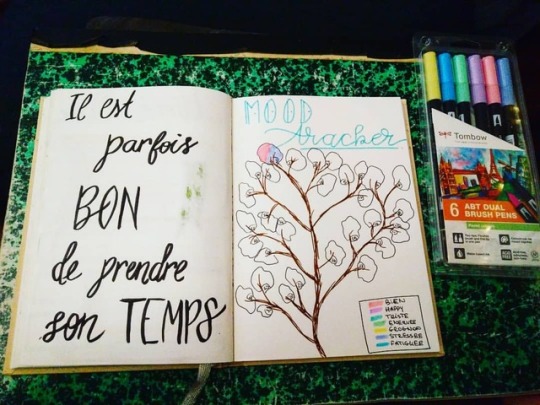 Il est
parfois
BON
de prendre
son TEMPS
MOOD
tracker
BIEN
HAPPY
TRISTE
ENERVÉE
GROGNON
STRESSÉE
FATIGUÉE
Tombow
6 ABT DUAL
BRUSH PENS